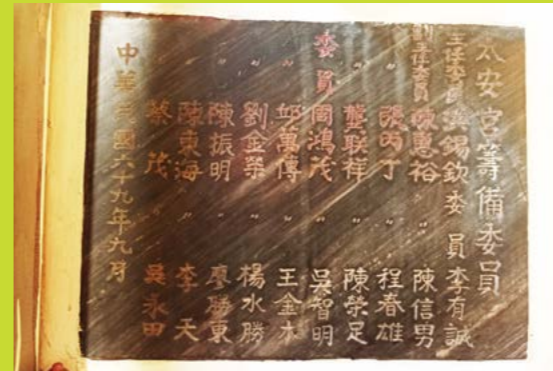 太安宮籌備委員
主任委員 洪錫欽 委員 李有誠
副主任委員 陳惠裕 〃 陳信男
〃 張丙丁 〃 程春雄
〃 龔联祥 〃 陳榮足
委員 周鴻茂 〃 吳智明
〃 邱萬傳 〃 王金木
〃 劉金榮 〃 楊水勝
〃 陳振明 〃 廖勝東
〃 陳東海 〃 李天
〃 蔡茂 〃 吳永田
中華民國六十九年九月